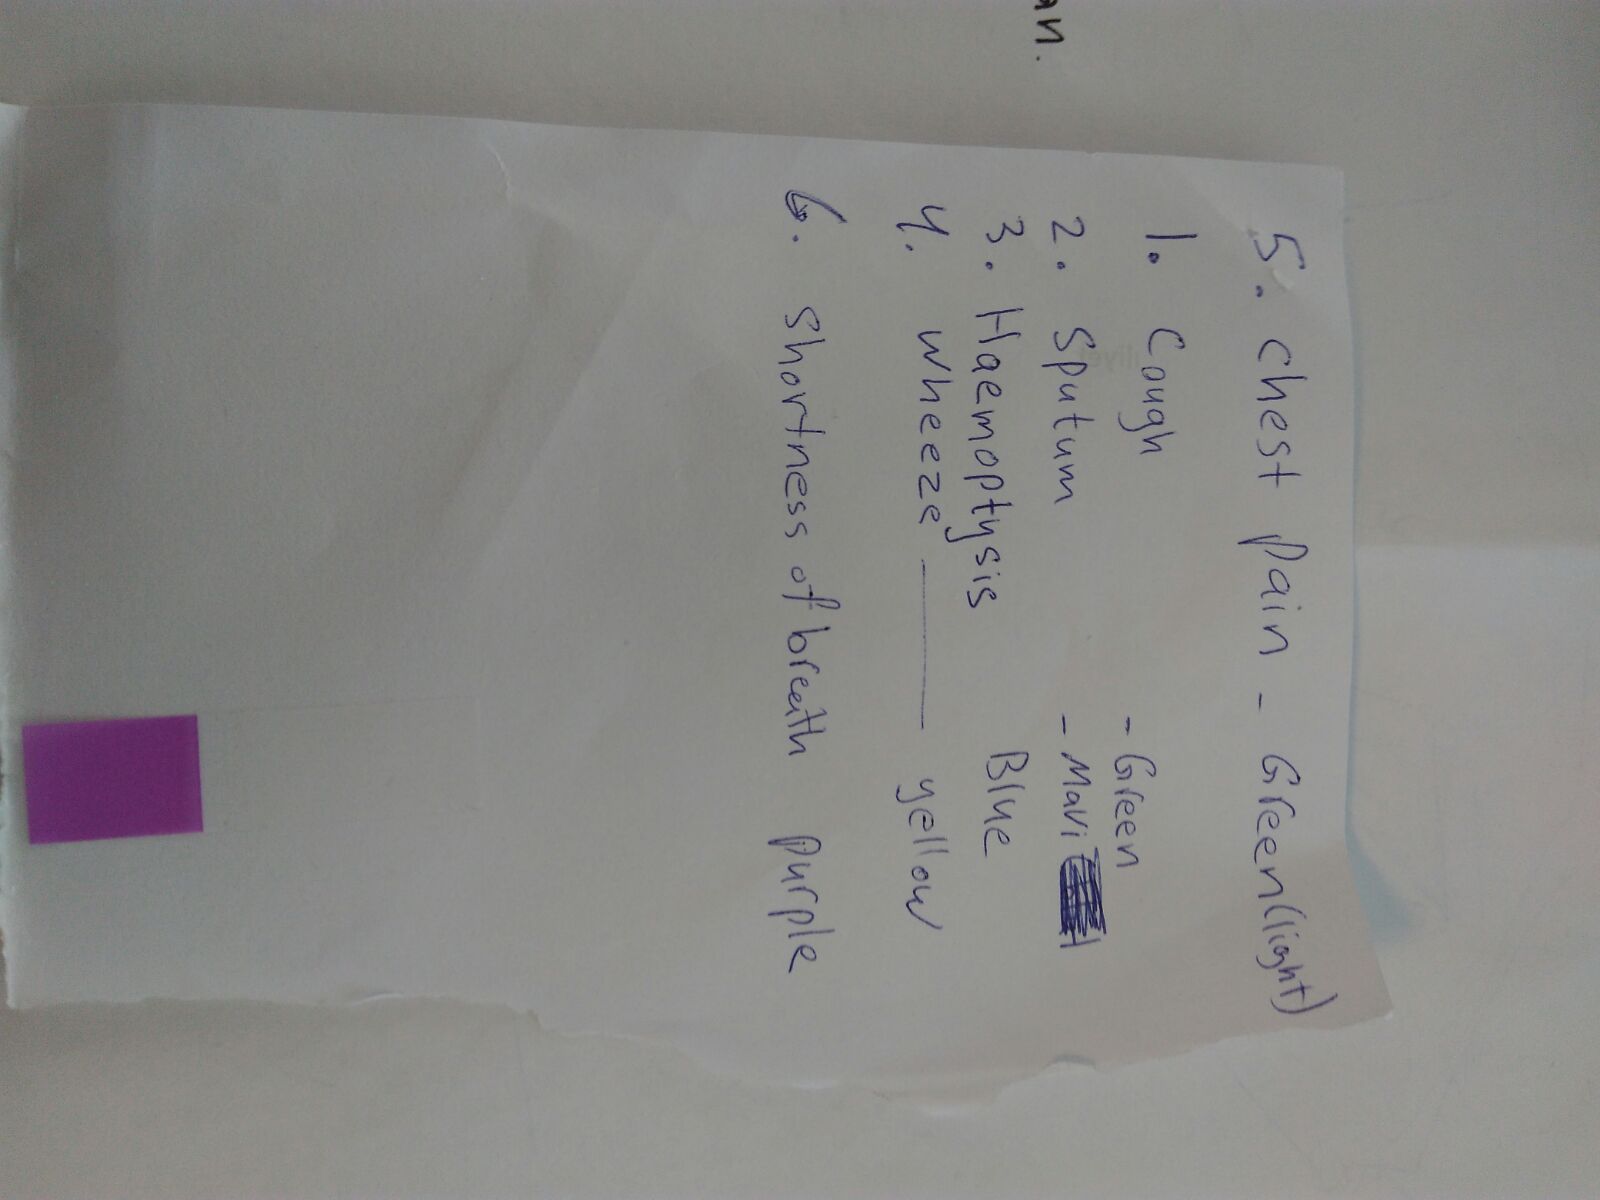 5. Chest pain - Green(light)
1. Cough - Green
2. Sputum - Mavi
3. Haemoptysis Blue
4. Wheeze — yellow
6. Shortness of breath purple
an.